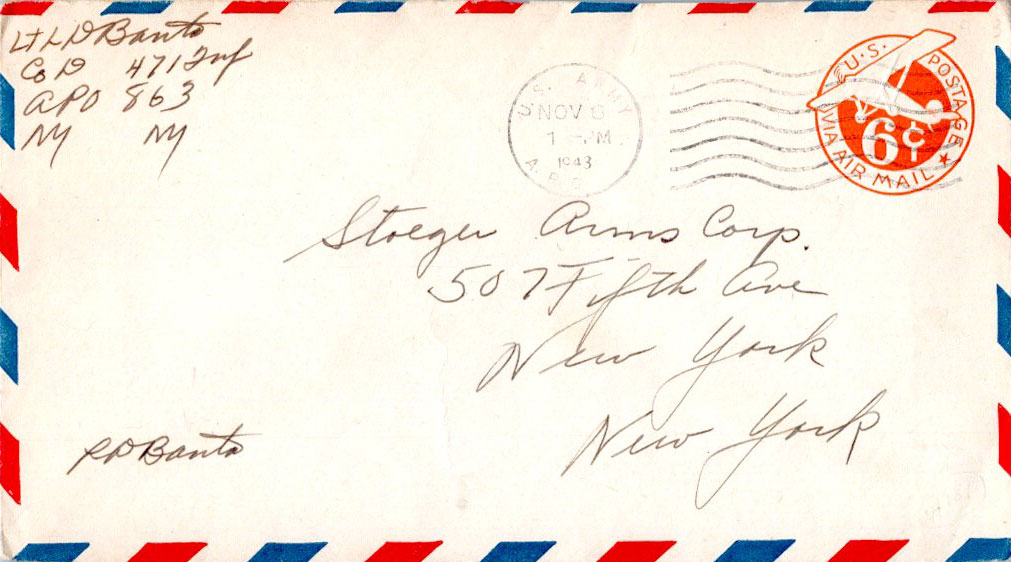 Lt L D Banta
Co D 471 Inf
APO 863
NY NY
U.S. ARMY
NOV 6
1 - PM
1943
A.P.O.
U.S. POSTAGE
6¢
VIA AIR MAIL
Stoeger Arms Corp.
507 Fifth Ave
New York
New York
L D Banta